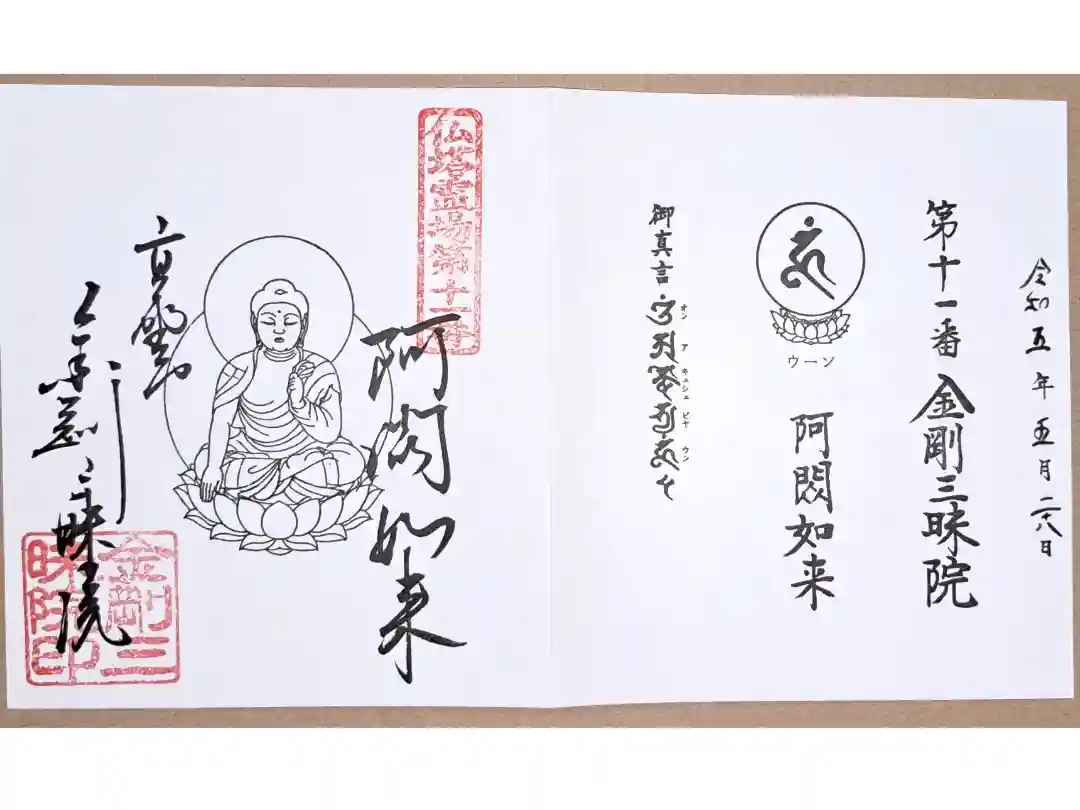 令和五年五月二十八日
第十一番 金剛三昧院
ウーン
阿閦如来
御真言
オン ア キシュ ビヤ ウン
仏塔霊場第十一番
阿閦如来
高野山
金剛三昧院
金剛三昧院印